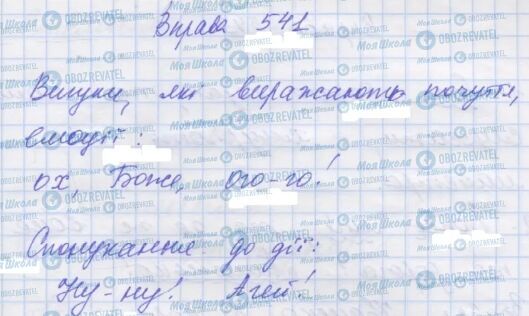 Вправа 541
Вигуки, які виражають почуття,
емоції:
ох, Боже, ого-го!
Спонукання до дії:
Ну-ну! Агей!